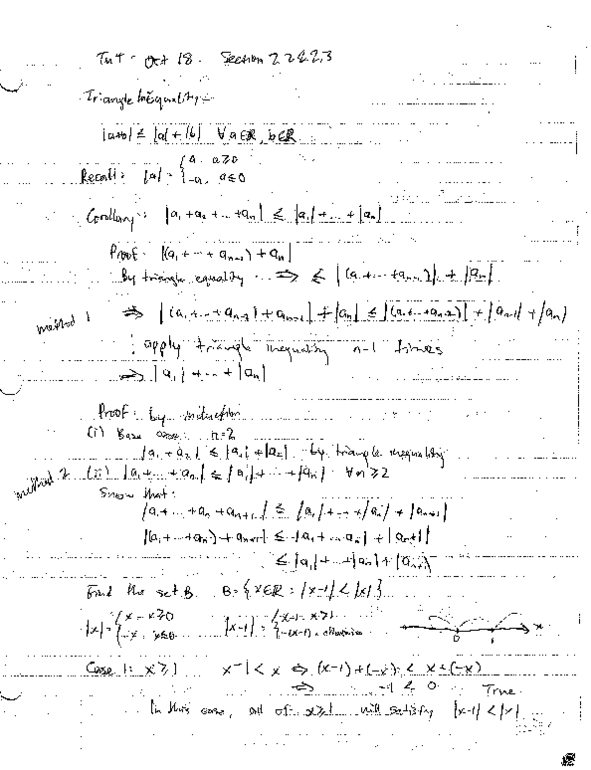 Tut - Oct 18. Section 2.2 & 2.3
Triangle Inequality -
|a+b| ≤ |a| + |b| ∀ a∈ℝ, b∈ℝ
Recall: |a| = { a, a≥0
-a, a≤0
Corollary: |a₁+a₂+...+aₙ| ≤ |a₁|+...+|aₙ|
Proof: |(a₁+...+aₙ₋₁)+aₙ|
By triangle equality ... ⇒ ≤ |(a₁+...+aₙ₋₁)| + |aₙ|
method 1 ⇒ |(a₁+...+aₙ₋₂)+aₙ₋₁| + |aₙ| ≤ |(a₁+...+aₙ₋₂)| + |aₙ₋₁| + |aₙ|
: apply triangle inequality n-1 times
⇒ |a₁|+...+|aₙ|
Proof: by induction
(i) Base case: n=2
|a₁+a₂| ≤ |a₁|+|a₂| by triangle inequality
method 2 (ii) |a₁+...+aₙ| ≤ |a₁|+...+|aₙ| ∀n≥2
Show that:
|a₁+...+aₙ+aₙ₊₁| ≤ |a₁|+...+|aₙ|+|aₙ₊₁|
|(a₁+...+aₙ)+aₙ₊₁| ≤ |a₁+...aₙ|+|aₙ₊₁|
≤ |a₁|+...+|aₙ|+|aₙ₊₁|
Find the set B. B={x∈ℝ: |x-1|<|x|}
|x| = { x - x≥0 |x-1| = { x-1 - x≥1
-x x≤0 -(x-1) - otherwise
0 1 x
Case 1: x≥1 x-1<x ⇔ (x-1)+(-x) < x+(-x)
⇔ -1 < 0 True.
In this case, all of x≥1 will satisfy |x-1|<|x|